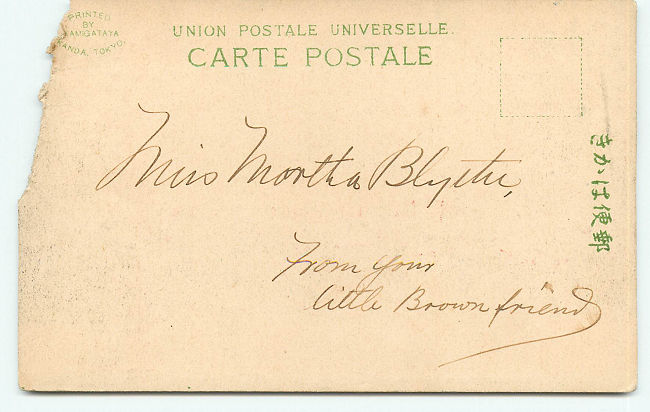 PRINTED
BY
KAMIGATAYA
KANDA, TOKYO.
UNION POSTALE UNIVERSELLE.
CARTE POSTALE
きかは便郵
Miss Martha Blythe,
From your
little Brown friend